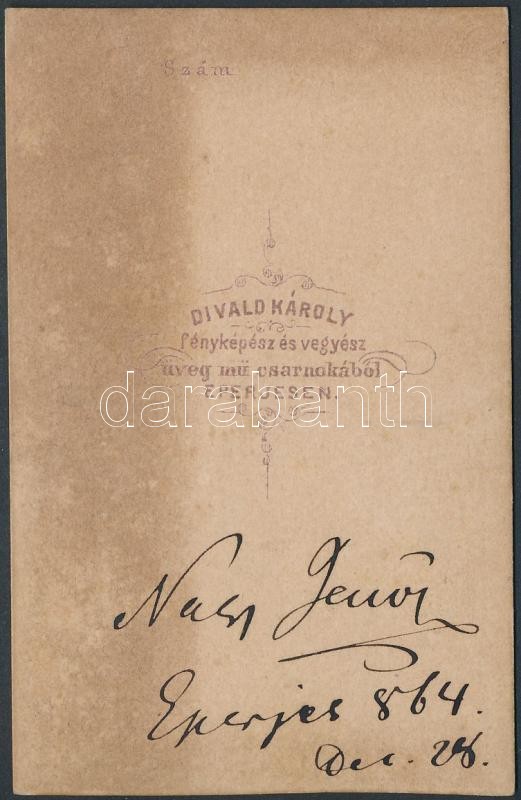 Szám
DIVALD KÁROLY
fényképész és vegyész
üveg mű-csarnokából
EPERJESEN.
darabanth
Nagy Jenő
Eperjes 864.
Dec. 28.